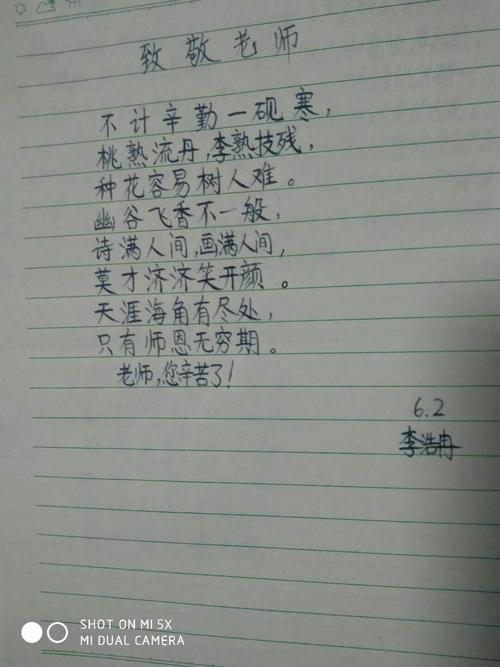 致敬老师
不计辛勤一砚寒，
桃熟流丹，李熟技残，
种花容易树人难。
幽谷飞香不一般，
诗满人间，画满人间，
莫才济济笑开颜。
天涯海角有尽处，
只有师恩无穷期。
老师，您辛苦了！
6.2
李浩冉
SHOT ON MI 5X
MI DUAL CAMERA